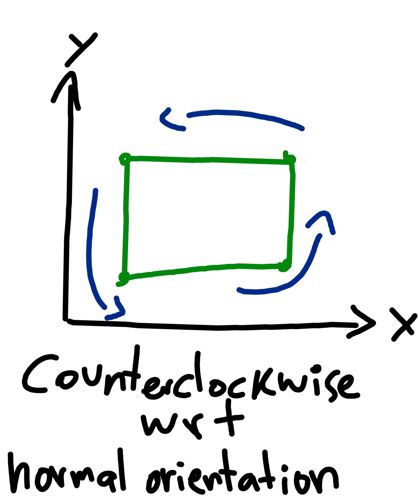 Y
X
Counterclockwise
wrt
normal orientation